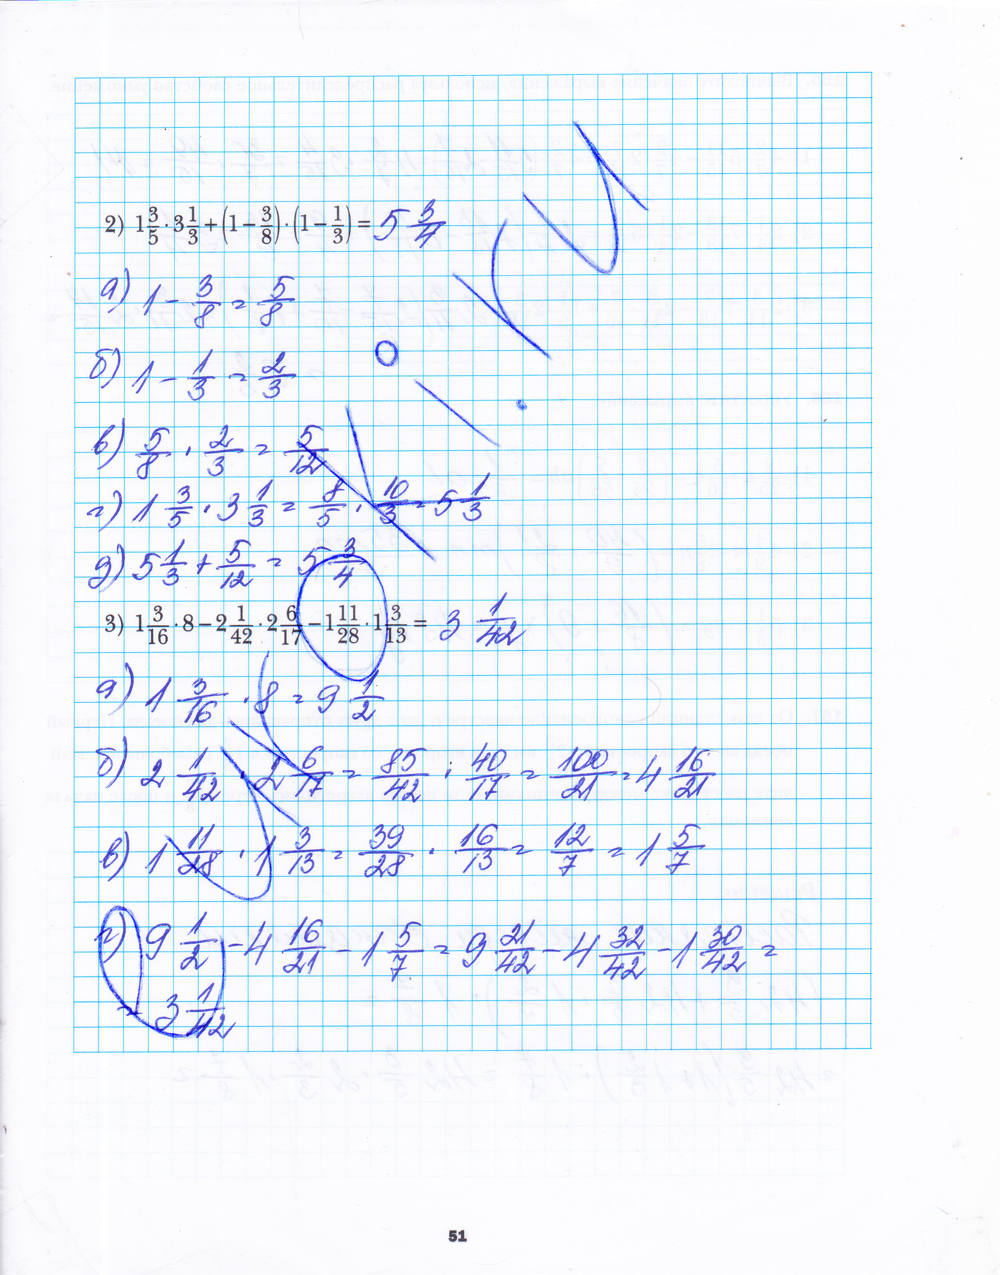 2) 1 3/5 · 3 1/3 + (1 − 3/8) · (1 − 1/3) = 5 3/4
а) 1 − 3/8 = 5/8
б) 1 − 1/3 = 2/3
в) 5/8 · 2/3 = 5/12
г) 1 3/5 · 3 1/3 = 8/5 · 10/3 = 5 1/3
д) 5 1/3 + 5/12 = 5 3/4
3) 1 3/16 · 8 − 2 1/42 · 2 6/17 − 1 11/28 · 1 3/13 = 3 1/42
а) 1 3/16 · 8 = 9 1/2
б) 2 1/42 · 2 6/17 = 85/42 · 40/17 = 100/21 = 4 16/21
в) 1 11/28 · 1 3/13 = 39/28 · 16/13 = 12/7 = 1 5/7
г) 9 1/2 − 4 16/21 − 1 5/7 = 9 21/42 − 4 32/42 − 1 30/42 =
= 3 1/42
51